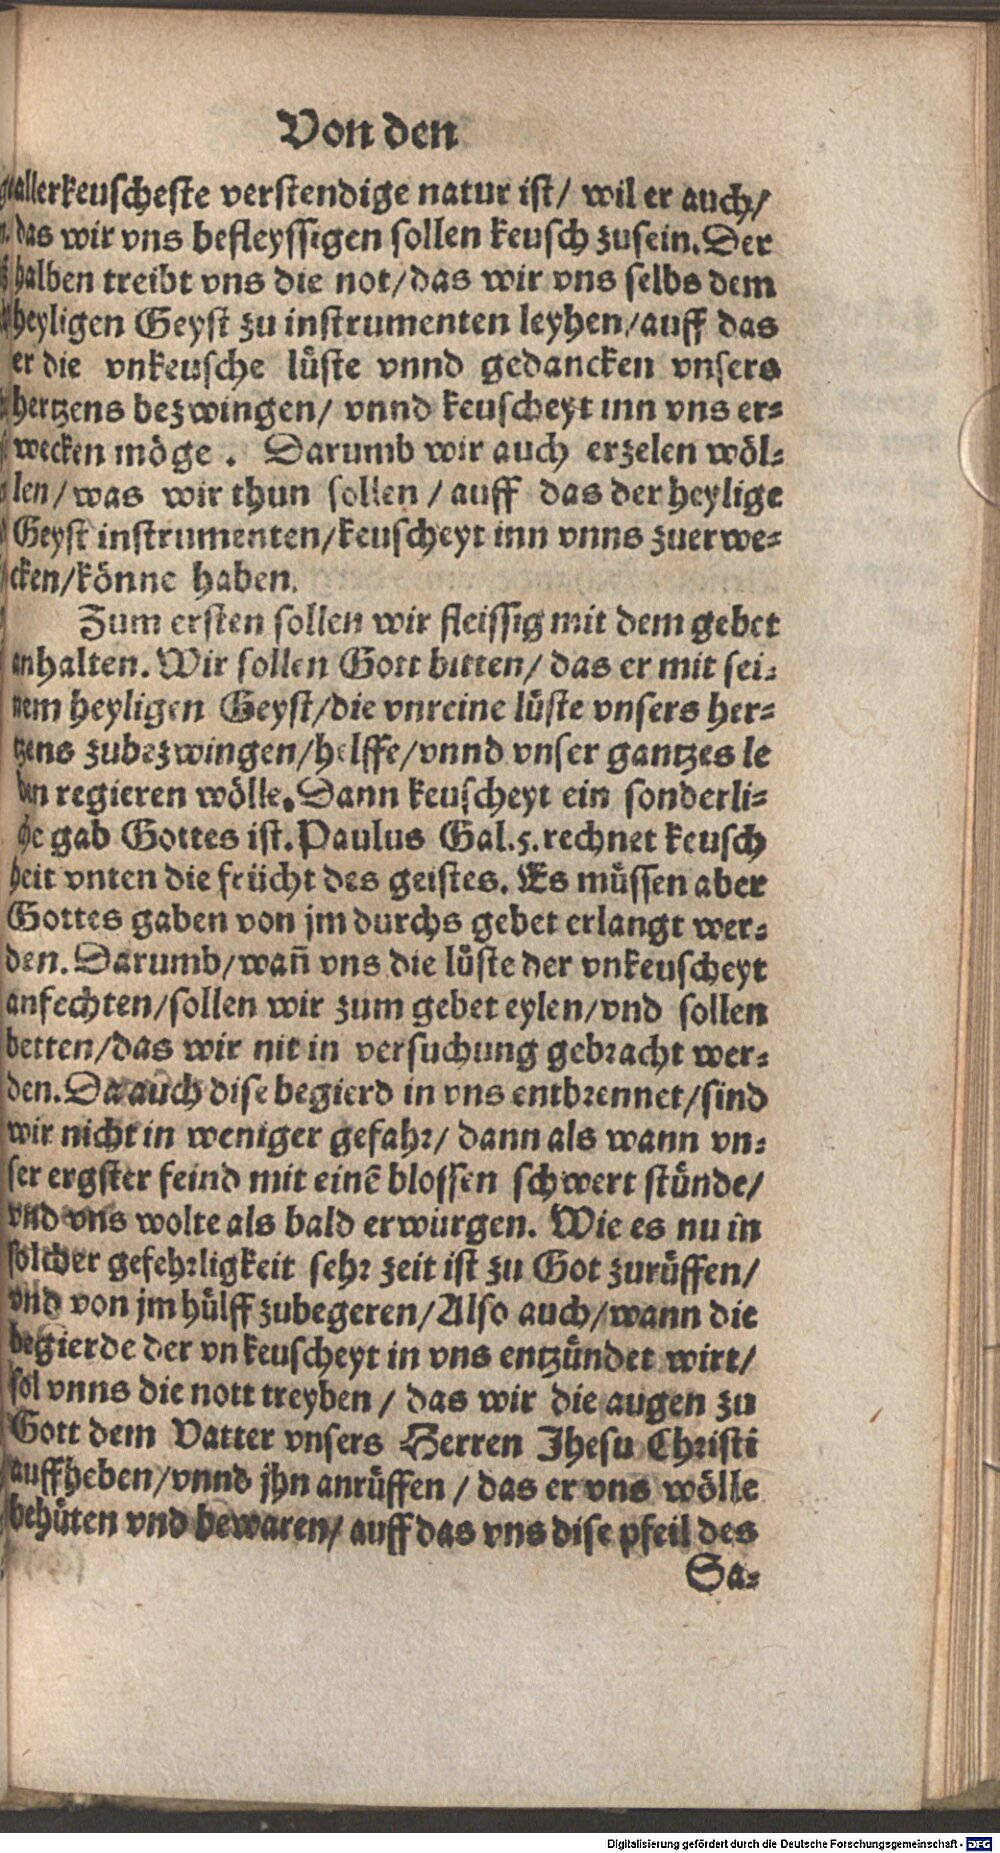 Von den
allerkeuscheste verstendige natur ist/ wil er auch/
das wir vns befleyssigen sollen keusch zusein. Der
halben treibt vns die not/das wir vns selbs dem
heyligen Geyst zu instrumenten leyhen/auff das
er die vnkeusche lüste vnnd gedancken vnsers
hertzens bezwingen/ vnnd keuscheyt inn vns er-
wecken möge. Darumb wir auch erzelen wöl-
len/was wir thun sollen/auff das der heylige
Geyst instrumenten/keuscheyt inn vnns zuerwe-
cken/könne haben.
Zum ersten sollen wir fleissig mit dem gebet
anhalten. Wir sollen Gott bitten/ das er mit sei-
nem heyligen Geyst/die vnreine lüste vnsers her-
tzens zubezwingen/helffe/vnnd vnser gantzes le
ben regieren wölle. Dann keuscheyt ein sonderli-
che gab Gottes ist. Paulus Gal.5. rechnet keusch
heit vnten die frücht des geistes. Es müssen aber
Gottes gaben von jm durchs gebet erlangt wer-
den. Darumb/wañ vns die lüste der vnkeuscheyt
anfechten/sollen wir zum gebet eylen/vnd sollen
betten/das wir nit in versuchung gebracht wer-
den. Da auch dise begierd in vns entbrennet/sind
wir nicht in weniger gefahr/ dann als wann vn-
ser ergster feind mit einē blossen schwert stünde/
vnd vns wolte als bald erwürgen. Wie es nu in
solcher gefehrligkeit sehr zeit ist zu Got zurüffen/
vnd von jm hülff zubegeren/Also auch/wann die
begierde der vnkeuscheyt in vns entzündet wirt/
sol vnns die nott treyben/ das wir die augen zu
Gott dem Vatter vnsers Herren Jhesu Christi
auffheben/vnnd jhn anrüffen/das er vns wölle
behüten vnd bewaren/ auff das vns dise pfeil des
Sa-
Digitalisierung gefördert durch die Deutsche Forschungsgemeinschaft - DFG